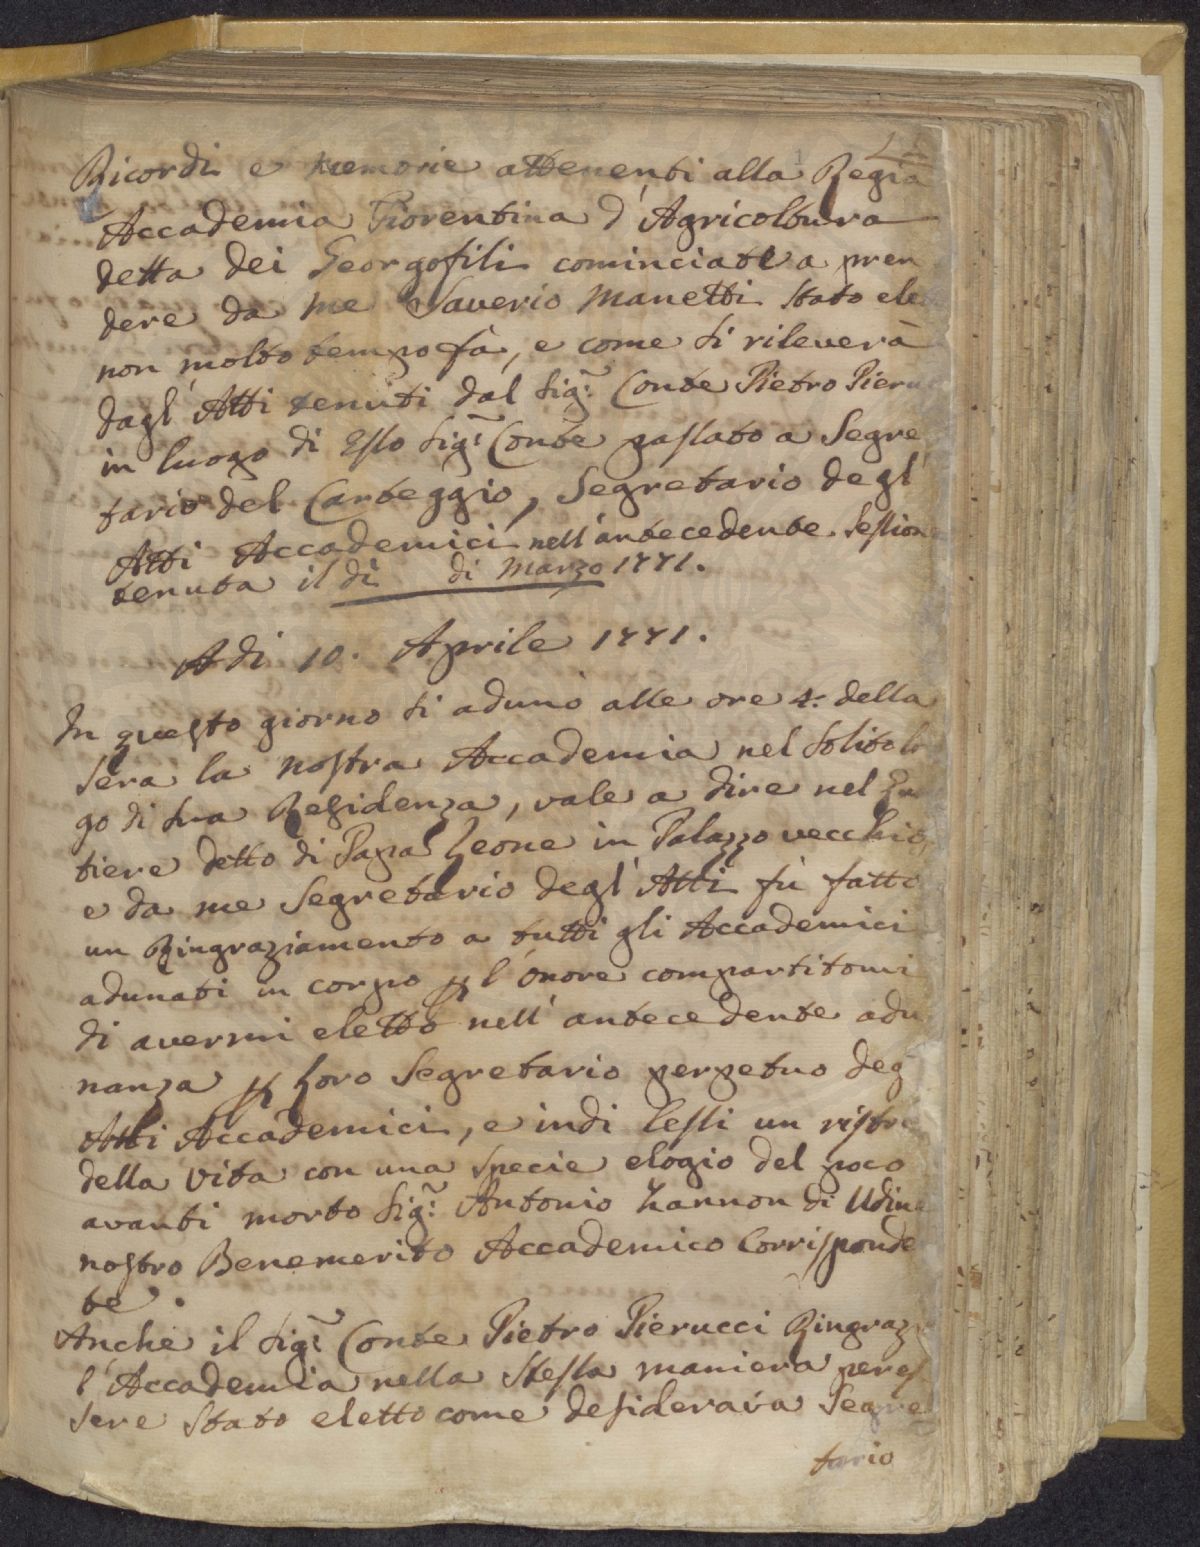 Ricordi e memorie attenenti alla Regia
Accademia Fiorentina d'Agricoltura
detta dei Georgofili cominciate a pren
dere da me Saverio Manetti stato ele
non molto tempo fà, e come si rileverà
dagl'Atti tenuti dal Sig.r Conte Pietro Pieru
in luogo di Esso Sig.r Conte passato a Segre
tario del Carteggio, Segretario degl'
Atti Accademici nell'antecedente Session
tenuta il dì di Marzo 1771.
Adi 10. Aprile 1771.
In questo giorno si adunò alle ore 4. della
sera la nostra Accademia nel solito lo
go di sua Residenza, vale a dire nel
tiere detto di Papa Leone in Palazzo vecchio,
e da me Segretario degl'Atti fù fatto
un Ringraziamento a tutti gli Accademici
adunati in corpo p l'onore compartitomi
di avermi eletto nell'antecedente adu
nanza p Loro Segretario perpetuo deg
Atti Accademici, e indi lessi un ristre
della vita con una specie elogio del poco
avanti morto Sig.r Antonio Zannon di Udine
nostro Benemerito Accademico Corrisponde
te.
Anche il Sig.r Conte Pietro Pierucci Ringrazi
l'Accademia nella stessa maniera per es
sere stato eletto come desiderava Segre
tario